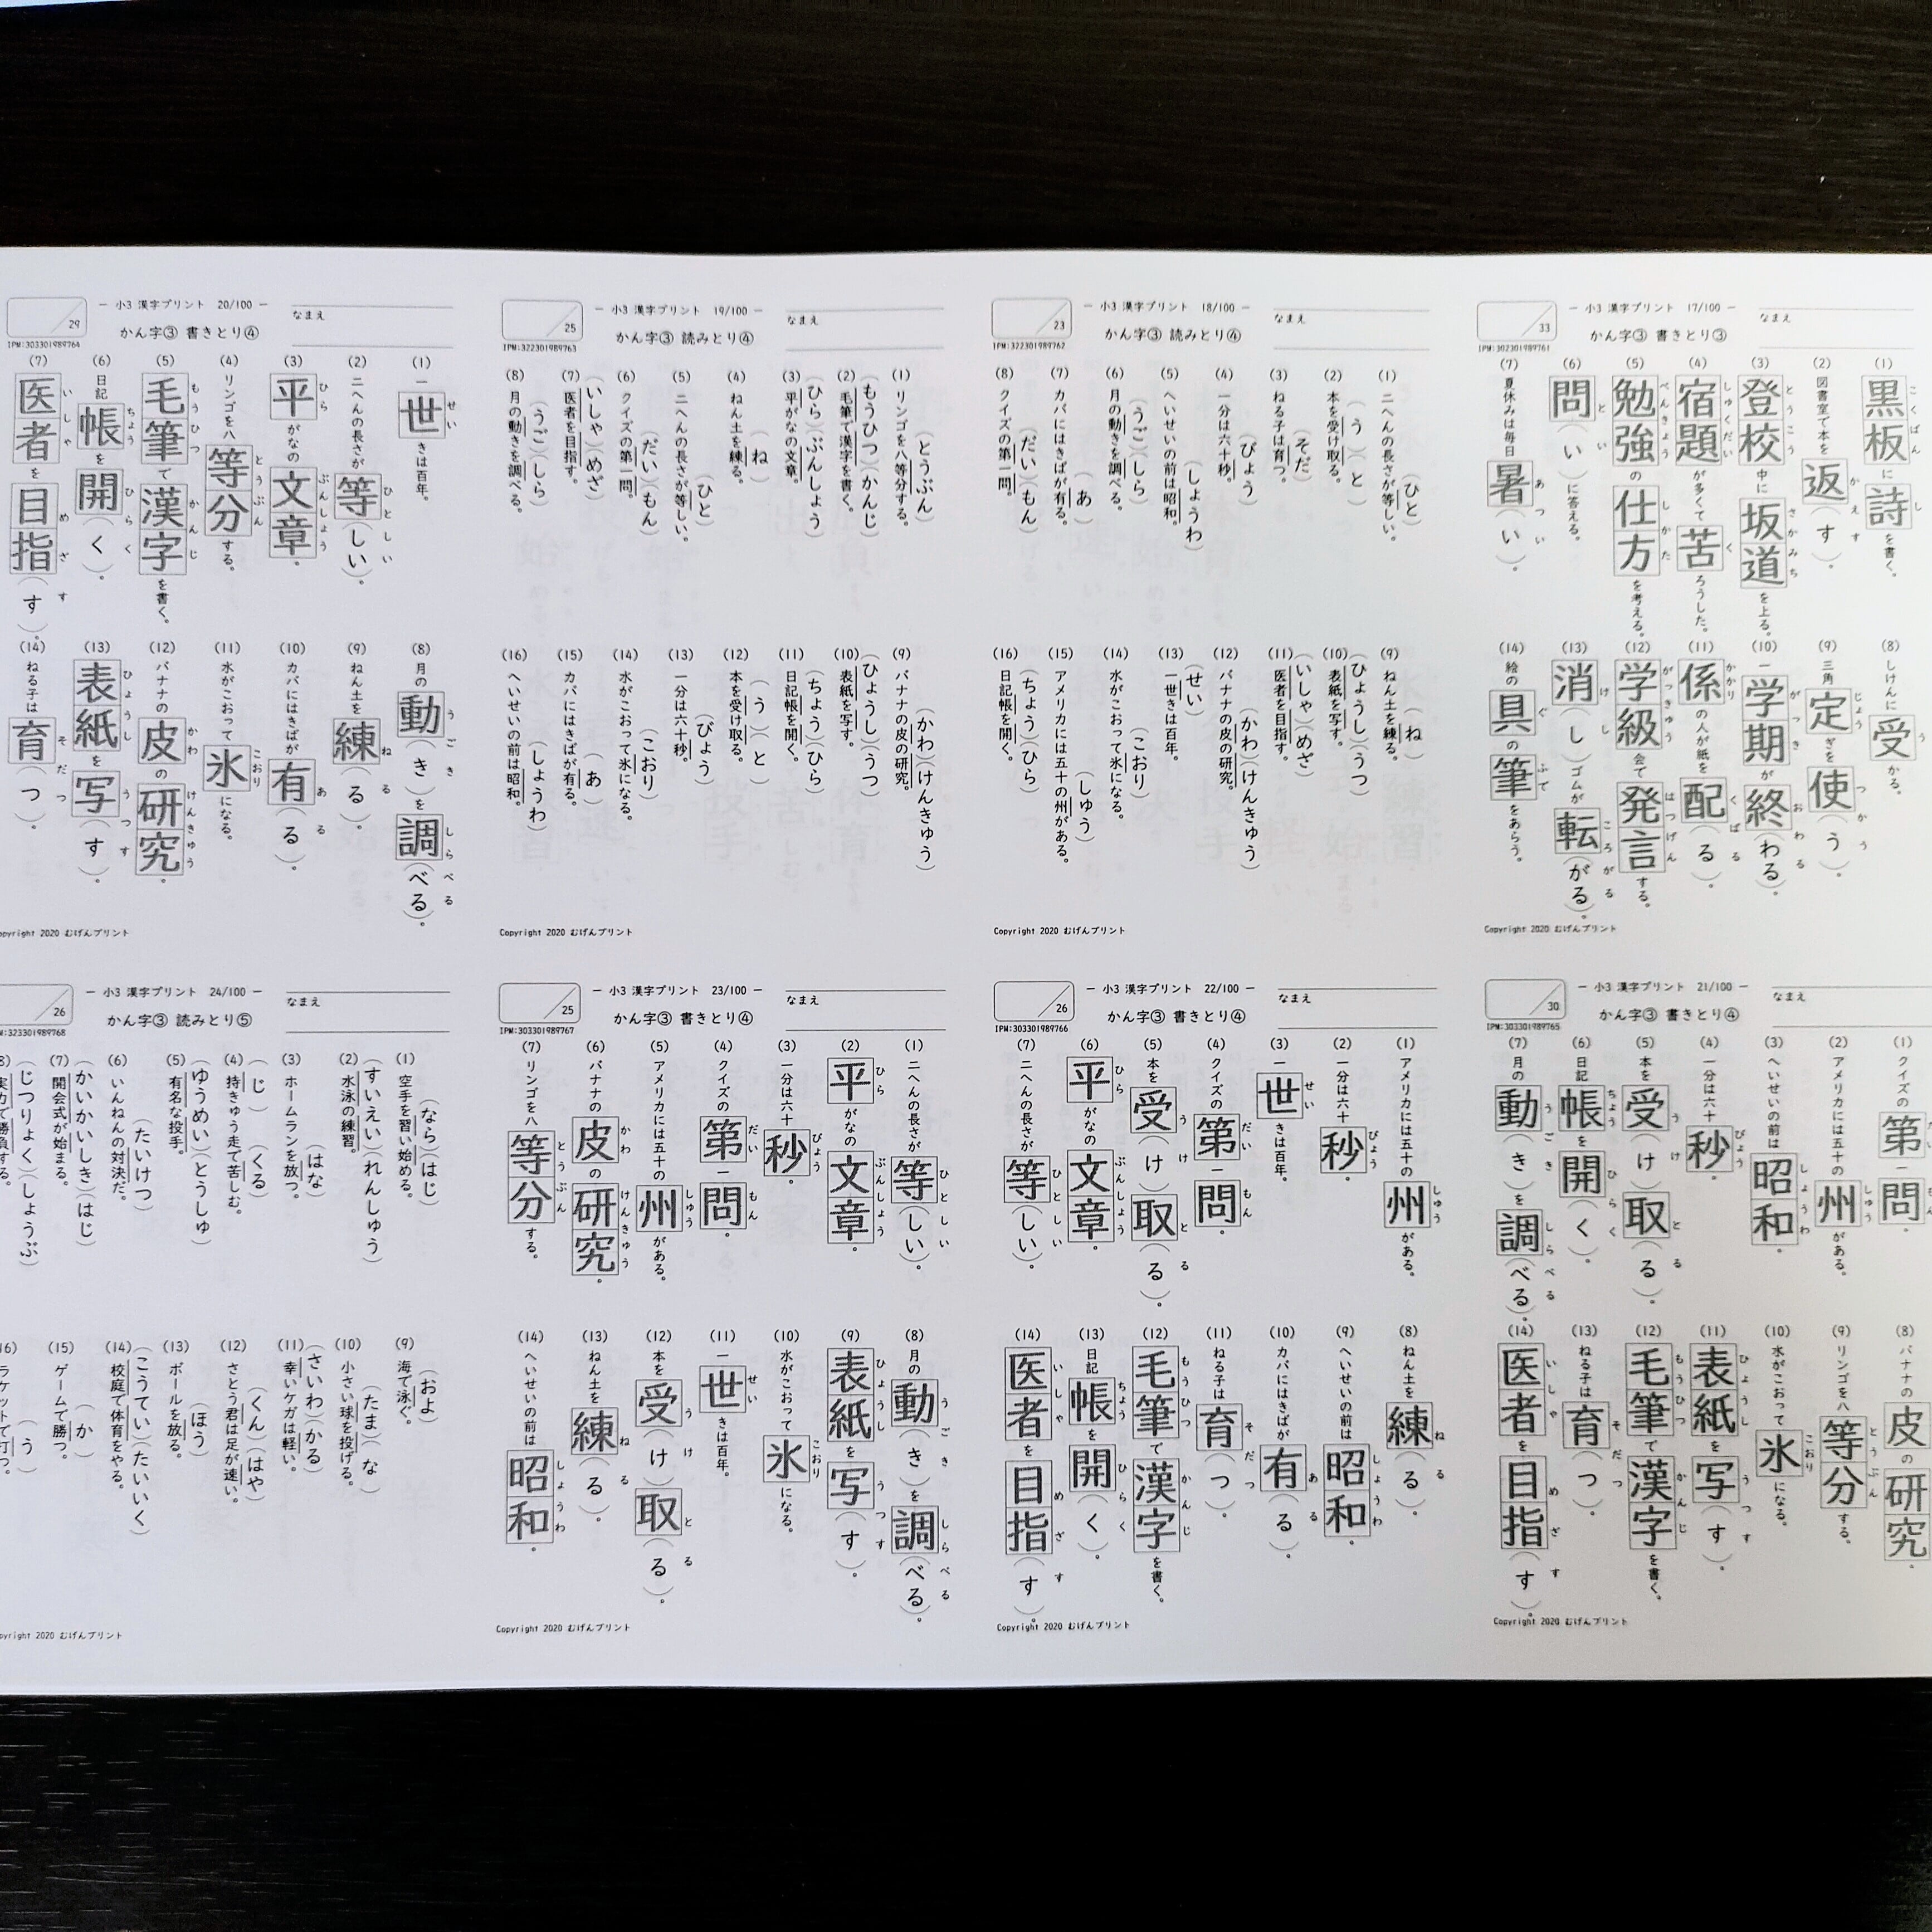 33
IPM:302301989761
― 小3 漢字プリント 17/100 ―
かん字③ 書きとり③
なまえ
こくばん し
(1) 黒板に詩を書く。
かえ す
(2) 図書室で本を返(す)。
とうこう さかみち
(3) 登校中に坂道を上る。
しゅくだい く
(4) 宿題が多くて苦ろうした。
べんきょう しかた
(5) 勉強の仕方を考える。
と い
(6) 問(い)に答える。
あつ い
(7) 夏休みは毎日暑(い)。
う
(8) しけんに受かる。
じょう つか う
(9) 三角定ぎを使(う)。
がっき おわ る
(10) 一学期が終(わる)。
かかり くば る
(11) 係の人が紙を配(る)。
がっきゅう はつげん
(12) 学級会で発言する。
け し ころ がる
(13) 消(し)ゴムが転(がる)。
ぐ ふで
(14) 絵の具の筆をあらう。
Copyright 2020 むげんプリント
23
IPM:322301989762
― 小3 漢字プリント 18/100 ―
かん字③ 読みとり④
なまえ
(ひと)
(1) 二へんの長さが等しい。
(う)(と)
(2) 本を受け取る。
(そだ)
(3) ねる子は育つ。
(びょう)
(4) 一分は六十秒。
(しょうわ)
(5) へいせいの前は昭和。
(うご)(しら)
(6) 月の動きを調べる。
(あ)
(7) カバにはきばが有る。
(だい)(もん)
(8) クイズの第一問。
(ね)
(9) ねん土を練る。
(ひょうし)(うつ)
(10) 表紙を写す。
(いしゃ)(めざ)
(11) 医者を目指す。
(かわ)(けんきゅう)
(12) バナナの皮の研究。
(せい)
(13) 一世きは百年。
(こおり)
(14) 水がこおって氷になる。
(しゅう)
(15) アメリカには五十の州がある。
(ちょう)(ひら)
(16) 日記帳を開く。
Copyright 2020 むげんプリント
25
IPM:322301989763
― 小3 漢字プリント 19/100 ―
かん字③ 読みとり④
なまえ
(とうぶん)
(1) リンゴを八等分する。
(もうひつ)(かんじ)
(2) 毛筆で漢字を書く。
(ひら)(ぶんしょう)
(3) 平がなの文章。
(ね)
(4) ねん土を練る。
(ひと)
(5) 二へんの長さが等しい。
(だい)(もん)
(6) クイズの第一問。
(いしゃ)(めざ)
(7) 医者を目指す。
(うご)(しら)
(8) 月の動きを調べる。
(かわ)(けんきゅう)
(9) バナナの皮の研究。
(ひょうし)(うつ)
(10) 表紙を写す。
(ちょう)(ひら)
(11) 日記帳を開く。
(う)(と)
(12) 本を受け取る。
(びょう)
(13) 一分は六十秒。
(こおり)
(14) 水がこおって氷になる。
(あ)
(15) カバにはきばが有る。
(しょうわ)
(16) へいせいの前は昭和。
Copyright 2020 むげんプリント
29
IPM:303301989764
― 小3 漢字プリント 20/100 ―
かん字③ 書きとり④
なまえ
せい
(1) 一世きは百年。
ひと しい
(2) 二へんの長さが等(しい)。
ひら ぶんしょう
(3) 平がなの文章。
とうぶん
(4) リンゴを八等分する。
もうひつ かんじ
(5) 毛筆で漢字を書く。
ちょう ひら く
(6) 日記帳を開(く)。
いしゃ めざ す
(7) 医者を目指(す)。
うご き しら べる
(8) 月の動(き)を調(べる)。
ね る
(9) ねん土を練(る)。
あ る
(10) カバにはきばが有(る)。
こおり
(11) 水がこおって氷になる。
かわ けんきゅう
(12) バナナの皮の研究。
ひょうし うつ す
(13) 表紙を写(す)。
そだ つ
(14) ねる子は育(つ)。
opyright 2020 むげんプリント
30
IPM:303301989765
― 小3 漢字プリント 21/100 ―
かん字③ 書きとり④
なまえ
(1) クイズの第一問。
しゅう
(2) アメリカには五十の州がある。
しょうわ
(3) へいせいの前は昭和。
びょう
(4) 一分は六十秒。
う け と る
(5) 本を受(け)取(る)。
ちょう ひら く
(6) 日記帳を開(く)。
うご き しら べる
(7) 月の動(き)を調(べる)。
(8) バナナの皮の研究。
とうぶん
(9) リンゴを八等分する。
こおり
(10) 水がこおって氷になる。
ひょうし うつ す
(11) 表紙を写(す)。
もうひつ かんじ
(12) 毛筆で漢字を書く。
そだ つ
(13) ねる子は育(つ)。
いしゃ めざ す
(14) 医者を目指(す)。
Copyright 2020 むげんプリント
26
IPM:303301989766
― 小3 漢字プリント 22/100 ―
かん字③ 書きとり④
なまえ
しゅう
(1) アメリカには五十の州がある。
びょう
(2) 一分は六十秒。
せい
(3) 一世きは百年。
だい もん
(4) クイズの第一問。
う け と る
(5) 本を受(け)取(る)。
ひら ぶんしょう
(6) 平がなの文章。
ひと しい
(7) 二へんの長さが等(しい)。
ね る
(8) ねん土を練(る)。
しょうわ
(9) へいせいの前は昭和。
あ る
(10) カバにはきばが有(る)。
そだ つ
(11) ねる子は育(つ)。
もうひつ かんじ
(12) 毛筆で漢字を書く。
ちょう ひら く
(13) 日記帳を開(く)。
いしゃ めざ す
(14) 医者を目指(す)。
Copyright 2020 むげんプリント
25
IPM:303301989767
― 小3 漢字プリント 23/100 ―
かん字③ 書きとり④
なまえ
ひと しい
(1) 二へんの長さが等(しい)。
ひら ぶんしょう
(2) 平がなの文章。
びょう
(3) 一分は六十秒。
だい もん
(4) クイズの第一問。
しゅう
(5) アメリカには五十の州がある。
かわ けんきゅう
(6) バナナの皮の研究。
とうぶん
(7) リンゴを八等分する。
うご き しら べる
(8) 月の動(き)を調(べる)。
ひょうし うつ す
(9) 表紙を写(す)。
こおり
(10) 水がこおって氷になる。
せい
(11) 一世きは百年。
う け と る
(12) 本を受(け)取(る)。
ね る
(13) ねん土を練(る)。
しょうわ
(14) へいせいの前は昭和。
Copyright 2020 むげんプリント
26
M:323301989768
― 小3 漢字プリント 24/100 ―
かん字③ 読みとり⑤
なまえ
(なら)(はじ)
(1) 空手を習い始める。
(すいえい)(れんしゅう)
(2) 水泳の練習。
(はな)
(3) ホームランを放つ。
(じ)(くる)
(4) 持きゅう走で苦しむ。
(ゆうめい)(とうしゅ)
(5) 有名な投手。
(たいけつ)
(6) いんねんの対決だ。
(かいかいしき)(はじ)
(7) 開会式が始まる。
じつりょく)(しょうぶ)
8) 実力で勝負する。
(およ)
(9) 海で泳ぐ。
(たま)(な)
(10) 小さい球を投げる。
(さいわ)(かる)
(11) 幸いケガは軽い。
(くん)(はや)
(12) さとう君は足が速い。
(ほう)
(13) ボールを放る。
(こうてい)(たいいく)
(14) 校庭で体育をやる。
(か)
(15) ゲームで勝つ。
(う)
16) ラケットで打つ。
pyright 2020 むげんプリント